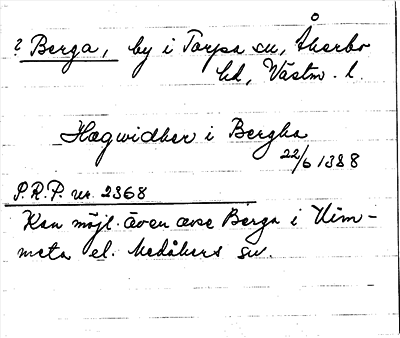 ? Berga, by i Torpa sn, Åkerbo
hd, Västm. l.
Hægwidher i Bergha
22/6 1388
P.R.P. nr. 2368
Kan möjl. även avse Berga i Kim-
meta el. Medåkers sn.